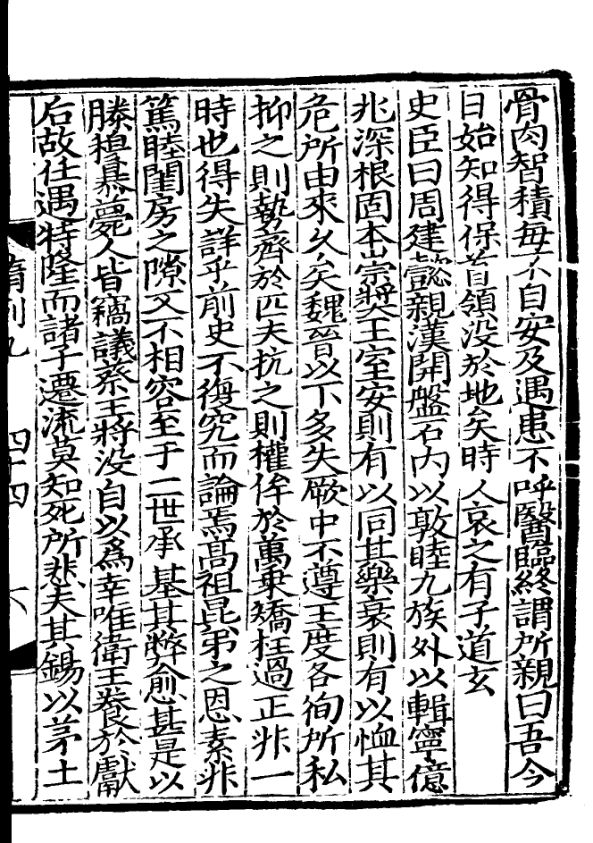 骨肉智積每不自安及遇患不呼醫臨終謂所親曰吾今
日始知得保首領没於地矣時人哀之有子道玄
史臣曰周建懿親漢開盤石内以敦睦九族外以輯寧億
兆深根固本崇奬王室安則有以同其樂衰則有以恤其
危所由來久矣魏晉以下多失厥中不遵王度各徇所私
抑之則勢齊於匹夫抗之則權侔於萬乗矯枉過正非一
時也得失詳乎前史不復究而論焉高祖昆弟之恩素非
篤睦閨房之隙又不相容至于二世承基其弊愈甚是以
滕穆暴薨人皆竊議蔡王將没自以爲幸唯衛王養於獻
后故任遇特隆而諸子遷流莫知死所悲夫其錫以茅土
隋列九 四十四 六